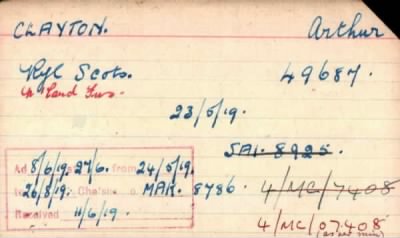 CLAYTON. Arthur
Ryl Scots. 49687.
N'land Fus.
23/5/19.
SAI. 8925.
Ad 8/6/19. 27/6. from 24/5/19.
26/8/19. o. MAR. 8786. 4/MC/7408
Received 11/6/19.
4/MC/07408